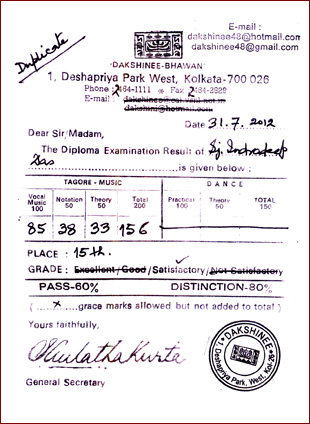 Duplicate
E-mail :
dakshinee48@hotmail.com
dakshinee48@gmail.com
'DAKSHINEE-BHAWAN'
1, Deshapriya Park West, Kolkata-700 026
Phone : 2464-1111 Fax 2464-2929
E-mail :
Date 31.7.2012
Dear Sir/Madam,
The Diploma Examination Result of Sj. Indradeep
Das is given below :
TAGORE - MUSIC DANCE
Vocal Music 100 Notation 50 Theory 50 Total 200 Practical 100 Theory 50 TOTAL 150
85 38 33 156
PLACE : 15th.
GRADE : Excellent/Good/Satisfactory/Not Satisfactory
PASS-60% DISTINCTION-80%
(.....x.....grace marks allowed but not added to total)
Yours faithfully,
General Secretary
DAKSHINEE
1, Deshapriya Park, West, Kol-26